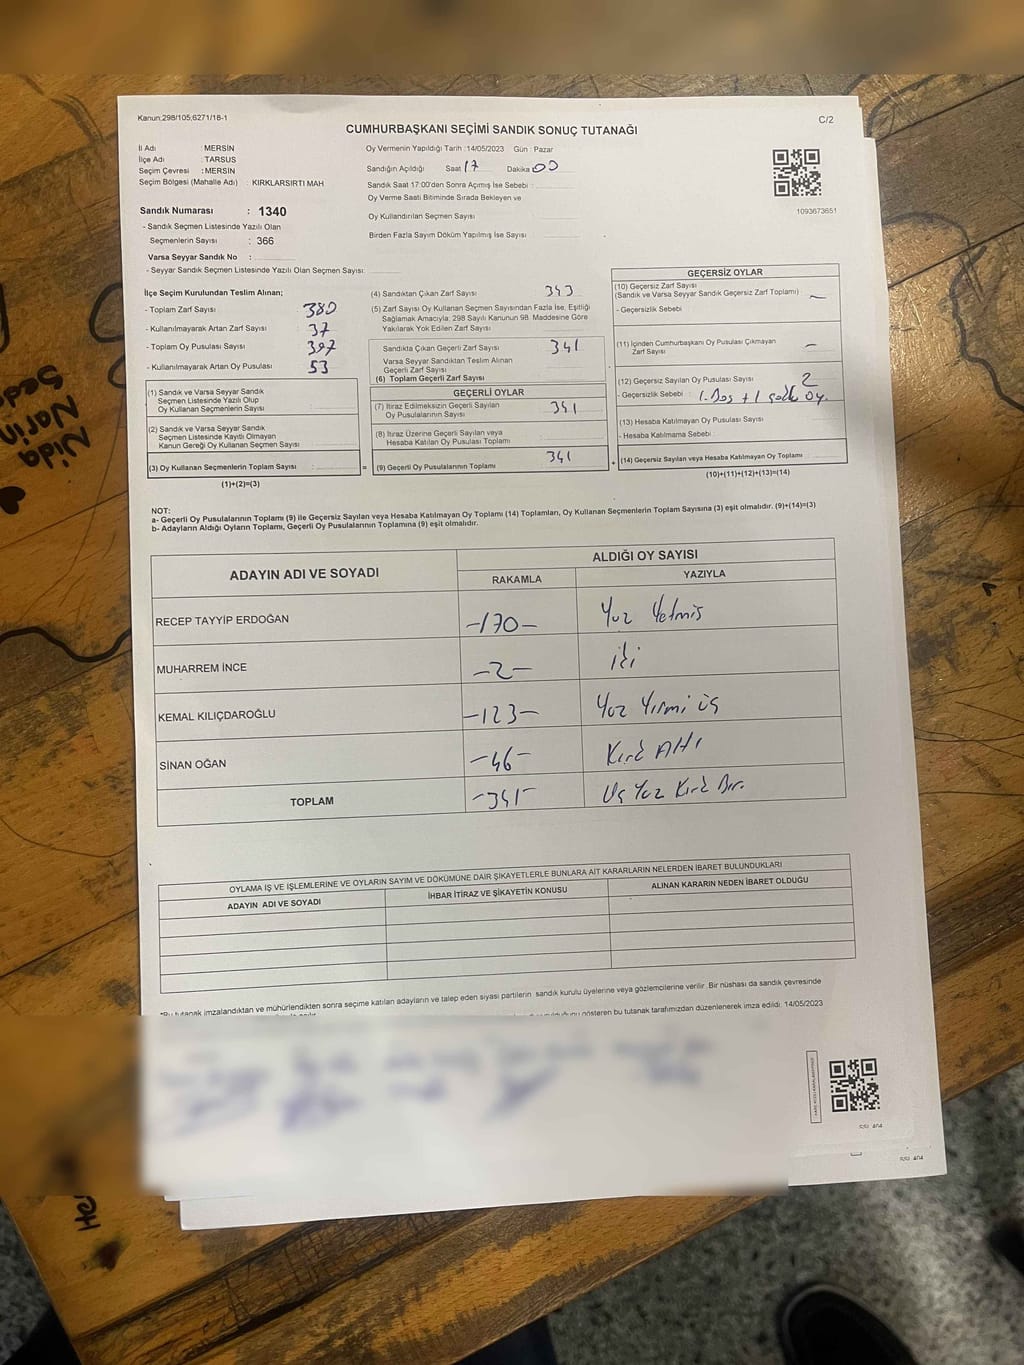 Kanun:298/105;6271/18-1
C/2
CUMHURBAŞKANI SEÇİMİ SANDIK SONUÇ TUTANAĞI
İl Adı : MERSİN
İlçe Adı : TARSUS
Seçim Çevresi : MERSİN
Seçim Bölgesi (Mahalle Adı) : KIRKLARSIRTI MAH
Sandık Numarası : 1340
- Sandık Seçmen Listesinde Yazılı Olan
Seçmenlerin Sayısı : 366
Varsa Seyyar Sandık No :
- Seyyar Sandık Seçmen Listesinde Yazılı Olan Seçmen Sayısı:
Oy Vermenin Yapıldığı Tarih :14/05/2023 Gün : Pazar
Sandığın Açıldığı Saat 17 Dakika 00
Sandık Saat 17:00'den Sonra Açımış İse Sebebi :
Oy Verme Saati Bitiminde Sırada Bekleyen ve
Oy Kullandırılan Seçmen Sayısı
Birden Fazla Sayım Döküm Yapılmış İse Sayısı
1093673651
İlçe Seçim Kurulundan Teslim Alınan;
- Toplam Zarf Sayısı 380
- Kullanılmayarak Artan Zarf Sayısı 37
- Toplam Oy Pusulası Sayısı 397
- Kullanılmayarak Artan Oy Pusulası 53
(1) Sandık ve Varsa Seyyar Sandık
Seçmen Listesinde Yazılı Olup
Oy Kullanan Seçmenlerin Sayısı
(2) Sandık ve Varsa Seyyar Sandık
Seçmen Listesinde Kayıtlı Olmayan
Kanun Gereği Oy Kullanan Seçmen Sayısı
(3) Oy Kullanan Seçmenlerin Toplam Sayısı :
(1)+(2)=(3)
(4) Sandıktan Çıkan Zarf Sayısı 343
(5) Zarf Sayısı Oy Kullanan Seçmen Sayısından Fazla İse, Eşitliği
Sağlamak Amacıyla, 298 Sayılı Kanunun 98. Maddesine Göre
Yakılarak Yok Edilen Zarf Sayısı
Sandıkta Çıkan Geçerli Zarf Sayısı 341
Varsa Seyyar Sandıktan Teslim Alınan
Geçerli Zarf Sayısı
(6) Toplam Geçerli Zarf Sayısı
GEÇERLİ OYLAR
(7) İtiraz Edilmeksizin Geçerli Sayılan
Oy Pusulalarının Sayısı 341
(8) İtiraz Üzerine Geçerli Sayılan veya
Hesaba Katılan Oy Pusulası Toplamı
= (9) Geçerli Oy Pusulalarının Toplamı 341
GEÇERSİZ OYLAR
(10) Geçersiz Zarf Sayısı
(Sandık ve Varsa Seyyar Sandık Geçersiz Zarf Toplamı) —
- Geçersizlik Sebebi
(11) İçinden Cumhurbaşkanı Oy Pusulası Çıkmayan
Zarf Sayısı —
(12) Geçersiz Sayılan Oy Pusulası Sayısı 2
- Geçersizlik Sebebi : 1. Boş +1 Oy.
(13) Hesaba Katılmayan Oy Pusulası Sayısı
- Hesaba Katılmama Sebebi
+ (14) Geçersiz Sayılan veya Hesaba Katılmayan Oy Toplamı :
(10)+(11)+(12)+(13)=(14)
NOT:
a- Geçerli Oy Pusulalarının Toplamı (9) ile Geçersiz Sayılan veya Hesaba Katılmayan Oy Toplamı (14) Toplamları, Oy Kullanan Seçmenlerin Toplam Sayısına (3) eşit olmalıdır. (9)+(14)=(3)
b- Adayların Aldığı Oyların Toplamı, Geçerli Oy Pusulalarının Toplamına (9) eşit olmalıdır.
ADAYIN ADI VE SOYADI ALDIĞI OY SAYISI
RAKAMLA YAZIYLA
RECEP TAYYİP ERDOĞAN -170- Yüz Yetmiş
MUHARREM İNCE -2- iki
KEMAL KILIÇDAROĞLU -123- Yüz Yirmi üç
SİNAN OĞAN -46- Kırk Altı
TOPLAM -341- Üç Yüz Kırk Bir.
OYLAMA İŞ VE İŞLEMLERİNE VE OYLARIN SAYIM VE DÖKÜMÜNE DAİR ŞİKAYETLERLE BUNLARA AİT KARARLARIN NELERDEN İBARET BULUNDUKLARI
ADAYIN ADI VE SOYADI İHBAR İTİRAZ VE ŞİKAYETİN KONUSU ALINAN KARARIN NEDEN İBARET OLDUĞU
*Bu tutanak imzalandıktan ve mühürlendikten sonra seçime katılan adayların ve talep eden siyasi partilerin sandık kurulu üyelerine veya gözlemcilerine verilir. Bir nüshası da sandık çevresinde
gösteren bu tutanak tarafımızdan düzenlenerek imza edildi. 14/05/2023
Nida
Narin